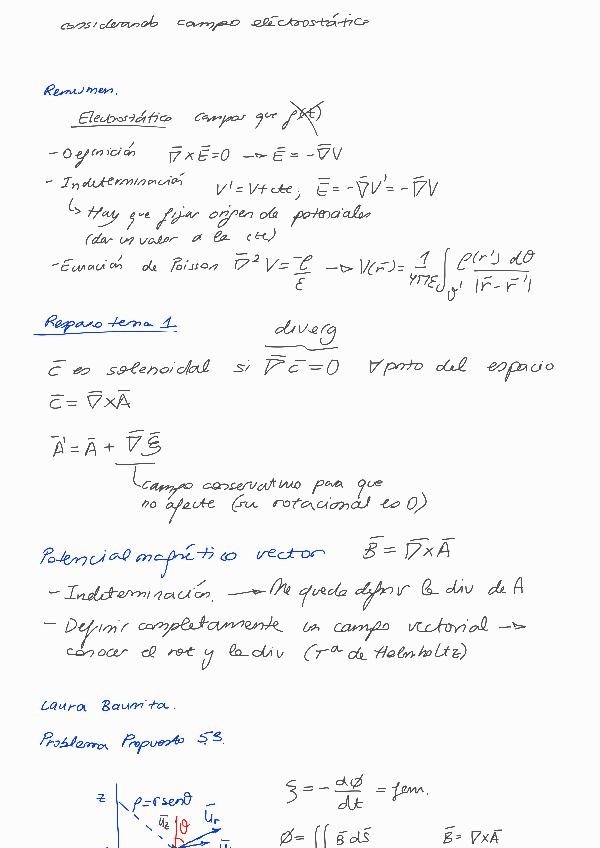 considerando campo eléctrostático
Resumen.
Electrostático campos que f(t)
- Definición ∇̄ x Ē = 0 → Ē = -∇̄V
- Indeterminación V' = V + cte, Ē = -∇̄V' = -∇̄V
↳ Hay que fijar origen de potenciales
(dar un valor a la cte)
- Ecuación de Poisson ∇̄² V = -ρ/ε → V(r̄) = 1/4πε ∫v' ρ(r̄') dϑ / |r̄ - r̄'|
Repaso tema 1.
diverg
c̄ es solenoidal si ∇̄ c̄ = 0 ∀ pnto del espacio
c̄ = ∇̄ x Ā
Ā' = Ā + ∇̄ξ
campo conservativo para que
no afecte (su rotacional es 0)
Potencial magnético vector B̄ = ∇̄ x Ā
- Indeterminación. → Me queda definir la div de A
- Definir completamente un campo vectorial →
conocer el rot y la div (Tª de Helmholtz)
Laura Baumita.
Problema Propuesto 5.3.
z ρ = r senθ ξ = - dϕ/dt = fem.
ūz θ ūr
ϕ = ∬ B̄ ds̄ B̄ = ∇ x Ā